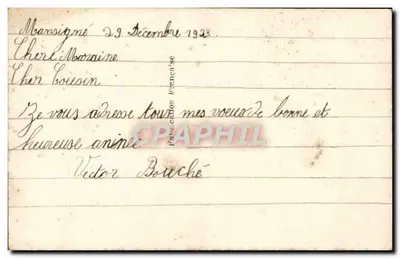 Mansigné 29 Décembre 1923.
Chère Marraine
Cher Cousin
Je vous adresse tous mes voeux de bonne et
heureuse année
Victor Bouché
Fabrication Française
CPAPHIL